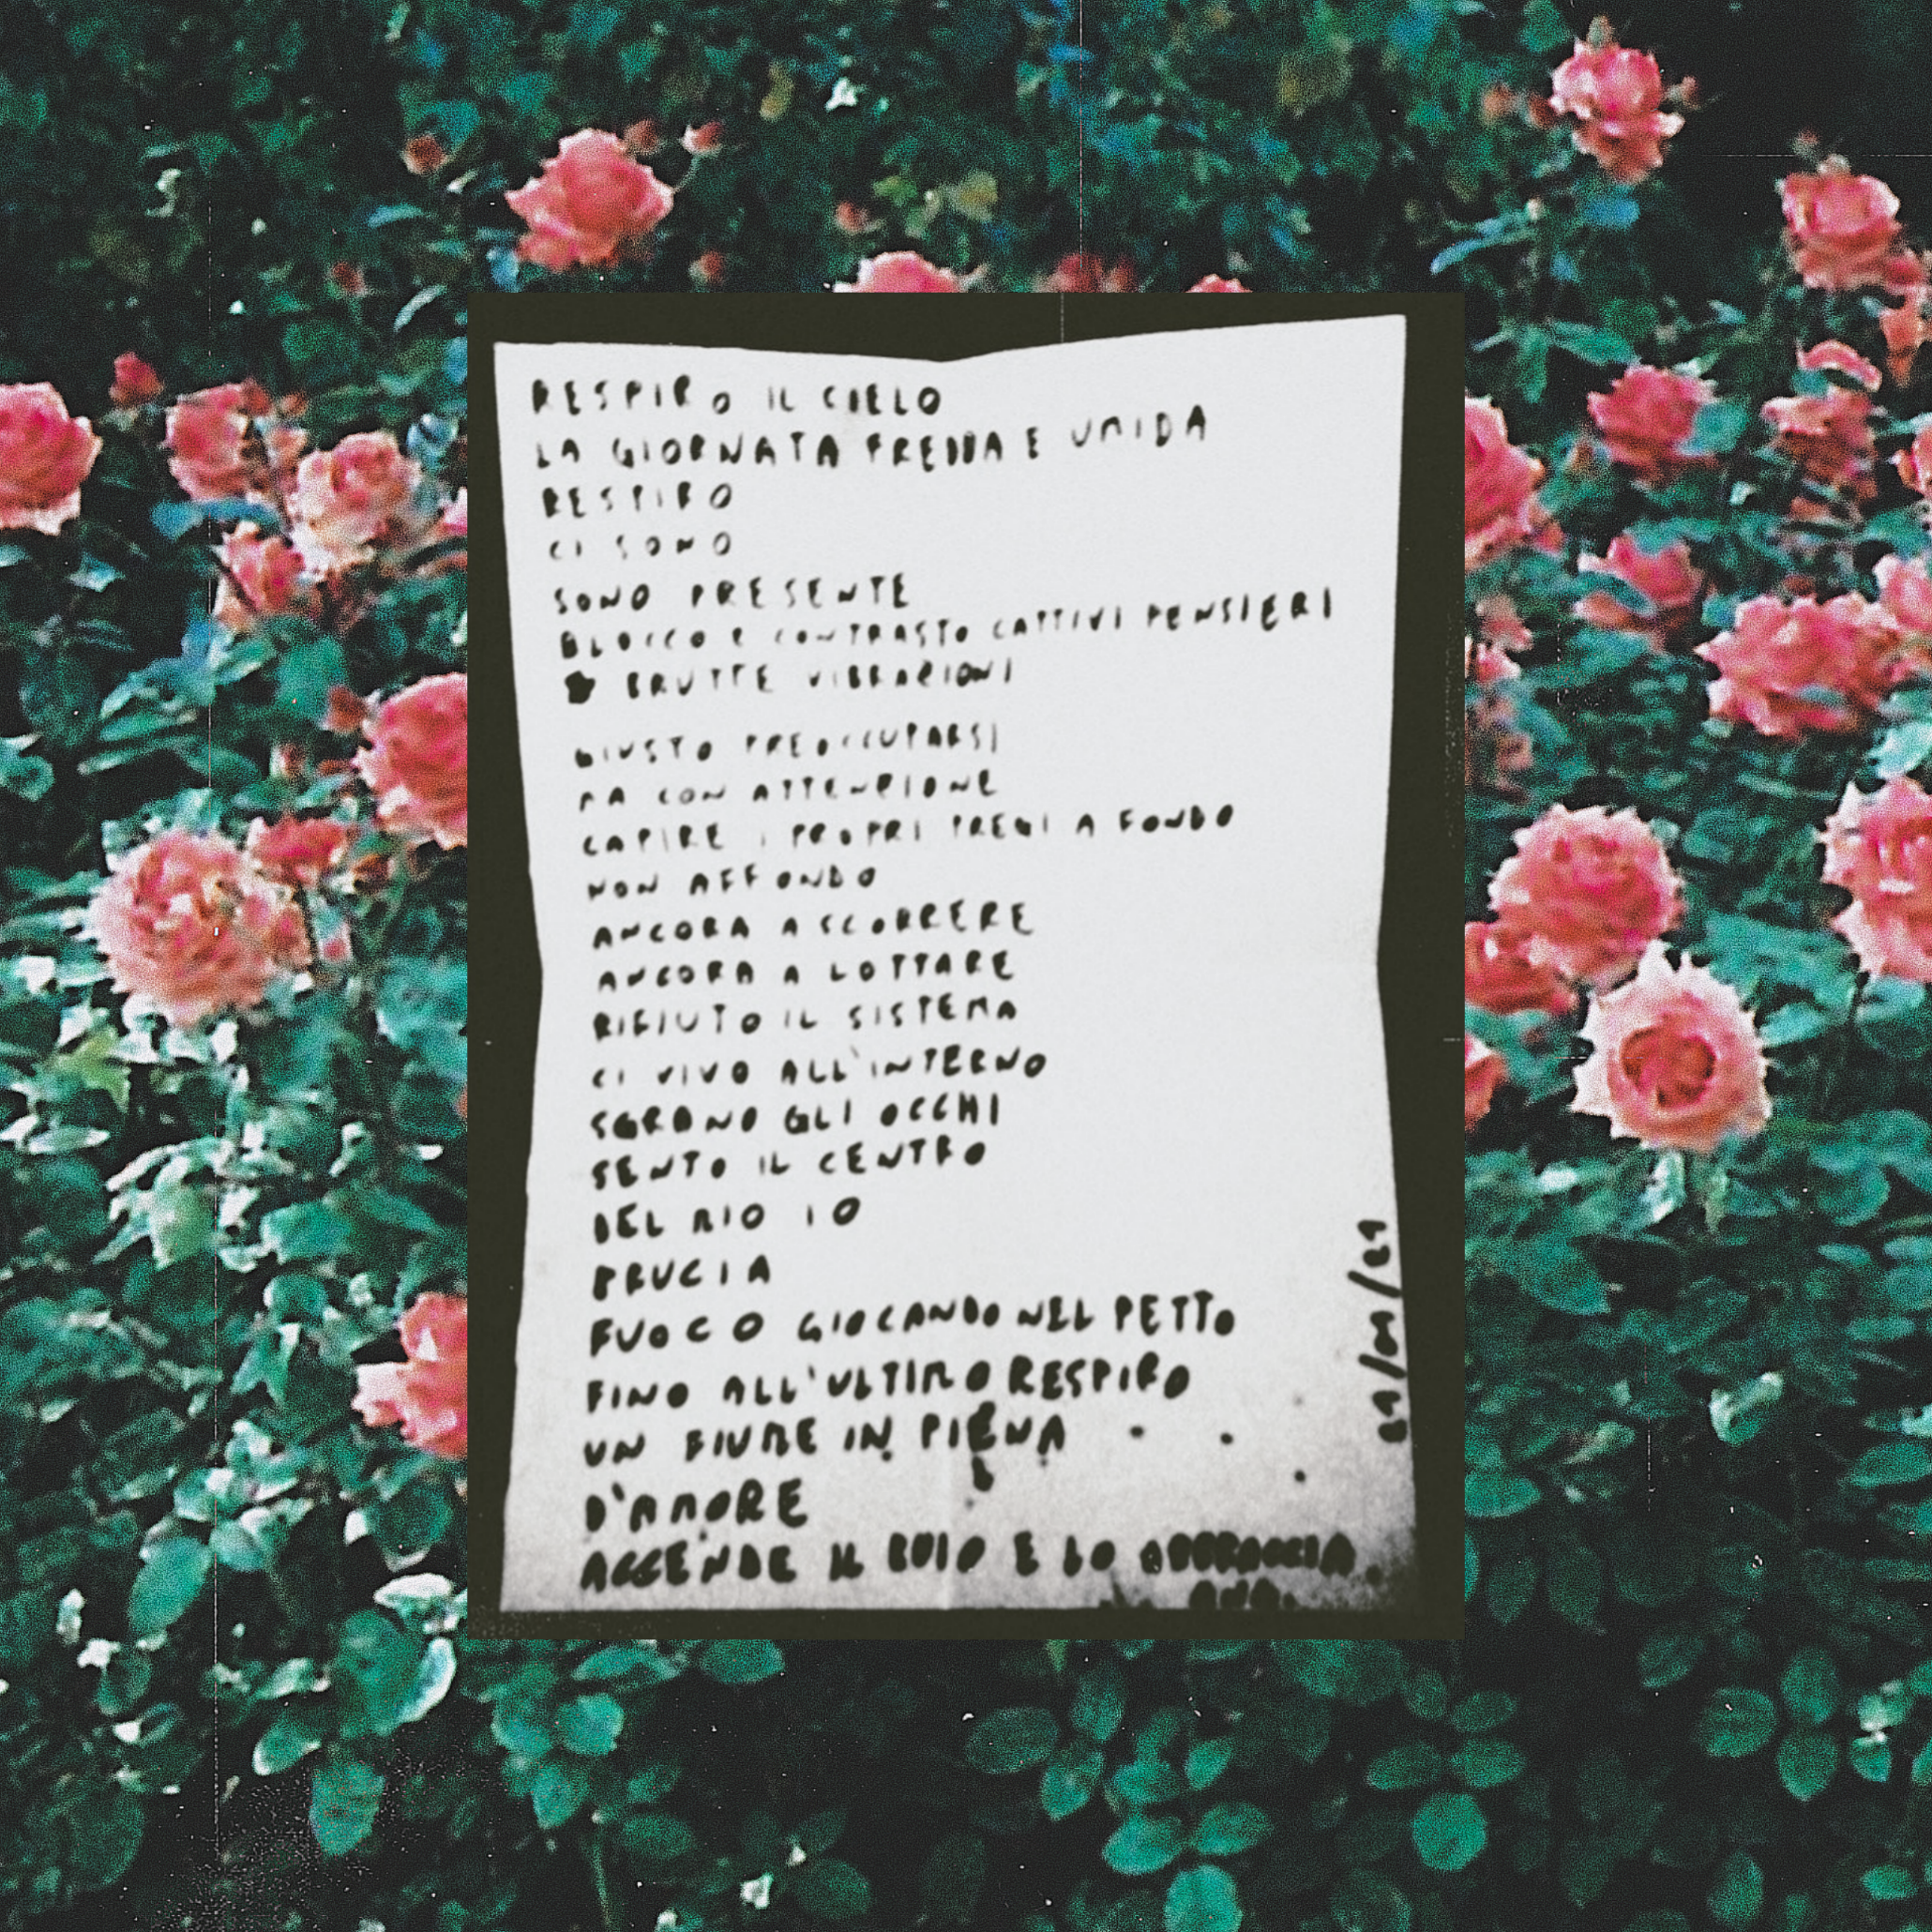 RESPIRO IL CIELO
LA GIORNATA FREDDA E UMIDA
RESPIRO
CI SONO
SONO PRESENTE
BLOCCO E CONTRASTO CATTIVI PENSIERI
BRUTTE VIBRAZIONI
GIUSTO PREOCCUPARSI
MA CON ATTENZIONE
CAPIRE I PROPRI PREGI A FONDO
NON AFFONDO
ANCORA A SCORRERE
ANCORA A LOTTARE
RIFIUTO IL SISTEMA
CI VIVO ALL'INTERNO
SGRANO GLI OCCHI
SENTO IL CENTRO
DEL MIO IO
BRUCIA
FUOCO GIOCANDO NEL PETTO
FINO ALL'ULTIMO RESPIRO
UN FIUME IN PIENA
D'AMORE
ACCENDE IL BUIO E LO ABBRACCIA.